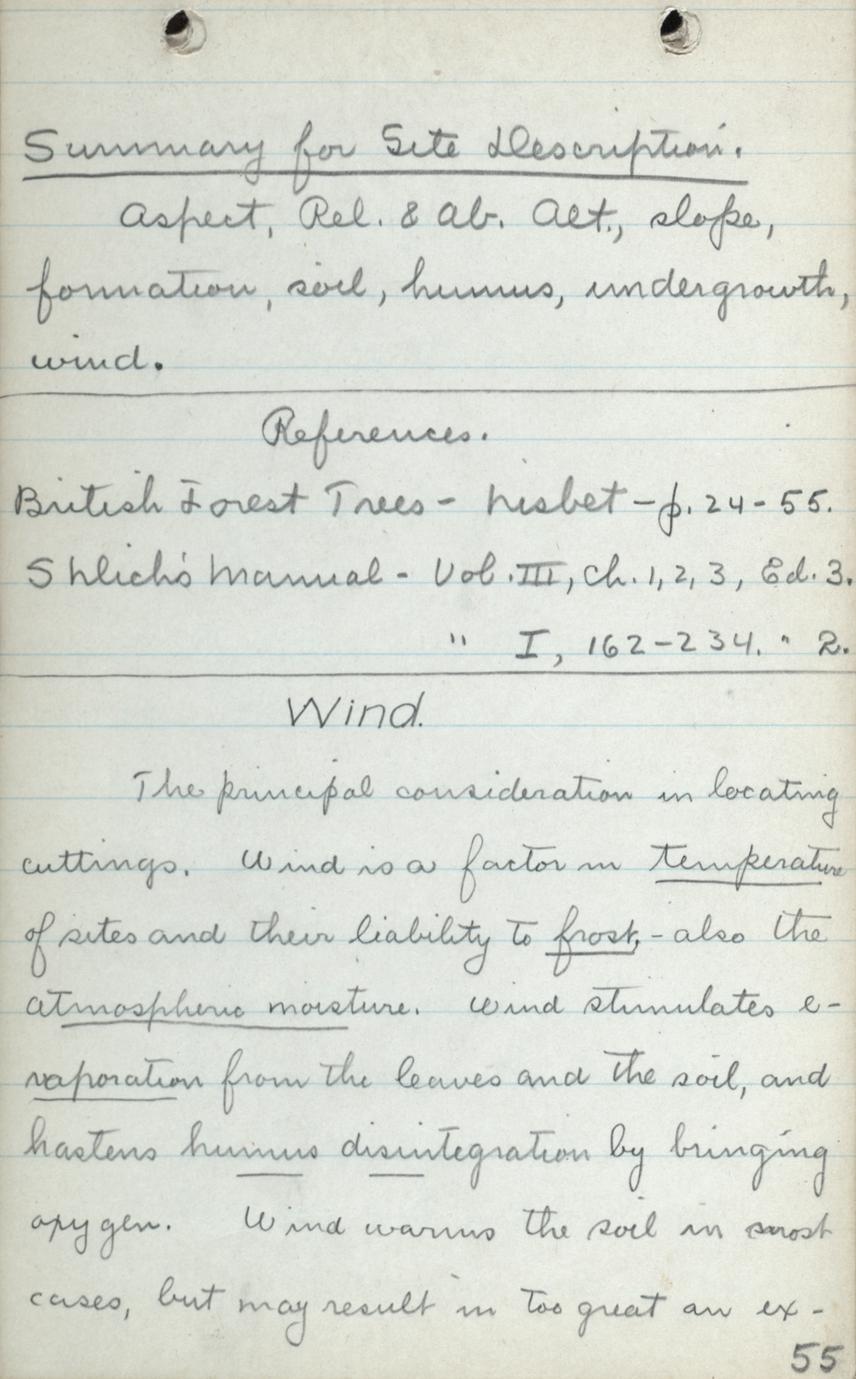 Summary for Site Description.
Aspect, Rel. & Ab. Alt., slope,
formation, soil, humus, undergrowth,
wind.
References.
British Forest Trees - Nisbet - p. 24-55.
Shlich's Manual - Vol. III, Ch. 1, 2, 3, Ed. 3.
" I, 162-234. " 2.
Wind.
The principal consideration in locating
cuttings. Wind is a factor in temperature
of sites and their liability to frost, - also the
atmospheric moisture. Wind stimulates e-
vaporation from the leaves and the soil, and
hastens humus disintegration by bringing
oxygen. Wind warms the soil in most
cases, but may result in too great an ex-
55